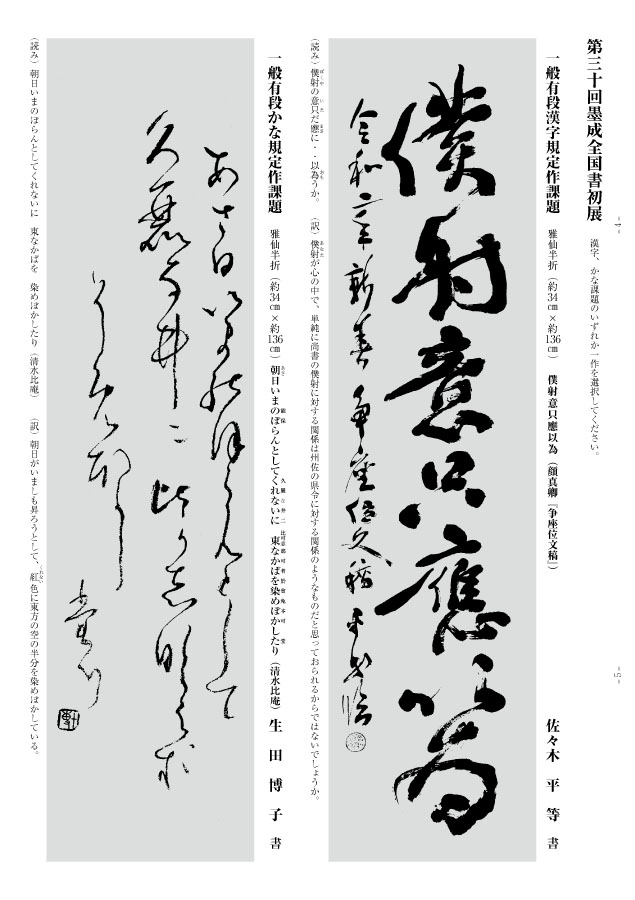 第三十回墨成全国書初展　漢字、かな課題のいずれか一作を選択してください。
-4-
一般有段漢字規定作課題　雅仙半折（約34㎝×約136㎝）　僕射意只應以為（顔真卿『争座位文稿』）　佐々木　平　等　書
僕射意只應以為
（読み）僕射の意只だ應に・・以為うか。　（訳）僕射が心の中で、単純に尚書の僕射に対する関係は州佐の県令に対する関係のようなものだと思っておられるからではないでしょうか。
-5-
一般有段かな規定作課題　雅仙半折（約34㎝×約136㎝）朝日いまのぼらんとしてくれないに　東なかばを染めぼかしたり（清水比庵）　生　田　博　子　書
（読み）朝日いまのぼらんとしてくれないに　東なかばを　染めぼかしたり　（清水比庵）　（訳）朝日がいましも昇ろうとして、紅色に東方の空の半分を染めぼかしている。